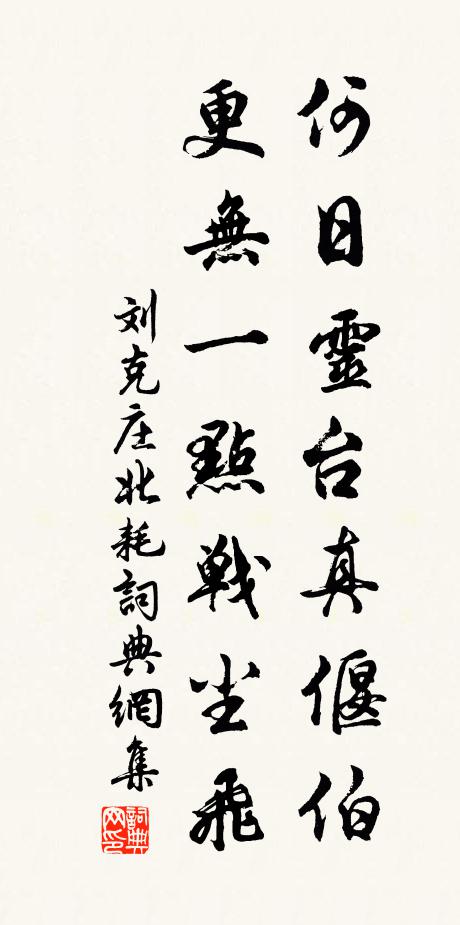 何日靈台真偃伯
更無一點戰尘飛
刘克庄北耗詞典網集
詞典
网印